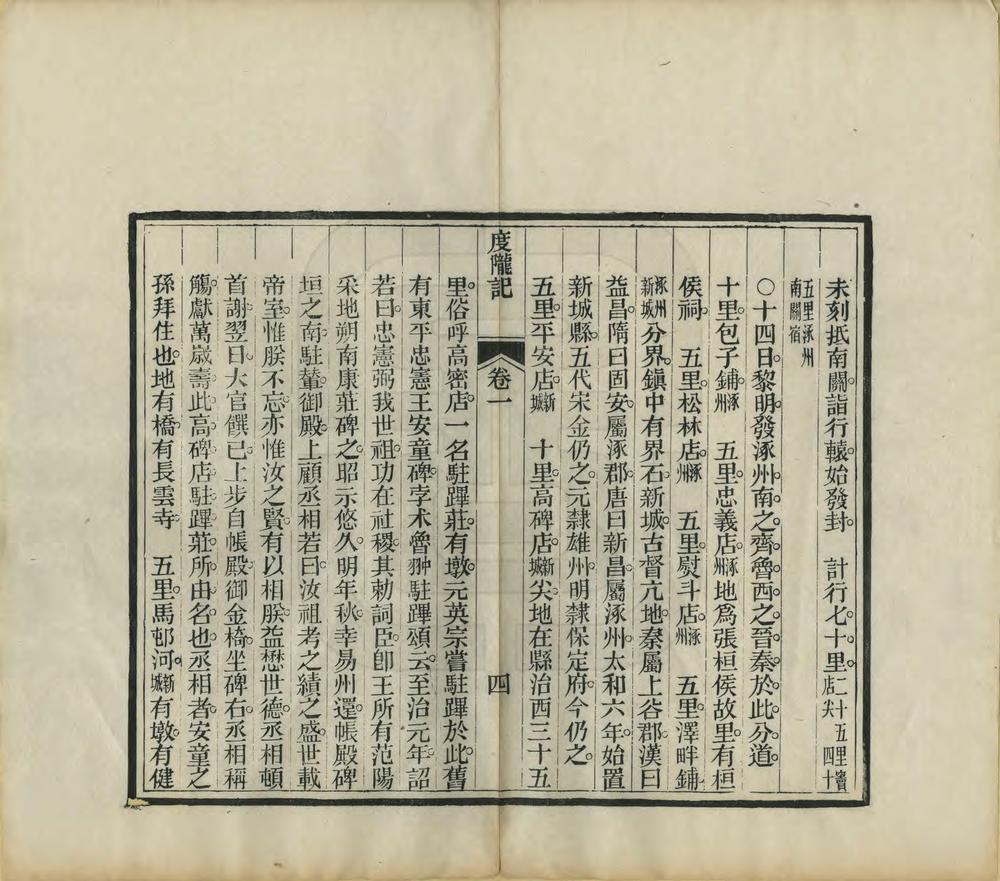 未刻抵南關詣行轅始發封 計行七十里二十五里竇店尖四十
五里涿州南關宿
○十四日黎明發涿州南之齊魯西之晉秦於此分道
十里包子鋪涿州 五里忠義店涿州地爲張桓侯故里有桓
侯祠 五里松林店涿州 五里熨斗店涿州 五里澤畔鋪
涿州新城分界鎭中有界石新城古督亢地秦屬上谷郡漢曰
益昌隋曰固安屬涿郡唐曰新昌屬涿州太和六年始置
新城縣五代宋金仍之元隸雄州明隸保定府今仍之
五里平安店新城 十里高碑店新城尖地在縣治西三十五
度隴記 卷一 四
里俗呼高密店一名駐蹕莊有墩元英宗嘗駐蹕於此舊
有東平忠憲王安童碑孛术魯翀駐蹕頌云至治元年詔
若曰忠憲弼我世祖功在社稷其勅詞臣卽王所有范陽
采地朔南康莊碑之昭示悠久明年秋幸易州還帳殿碑
垣之南駐輦御殿上顧丞相若曰汝祖考之績之盛世載
帝室惟朕不忘亦惟汝之賢有以相朕益懋世德丞相頓
首謝翌日大官饌已上步自帳殿御金椅坐碑右丞相稱
觴獻萬歲壽此高碑店駐蹕莊所由名也丞相者安童之
孫拜住也地有橋有長雲寺 五里馬邨河新城有墩有健